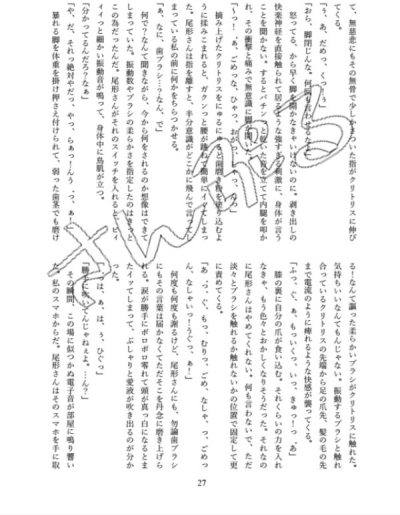 て、無慈悲にもその無骨で少しかさついた指がクリトリスに伸び
てくる。
「うぁ、だめっ、くっ、う」
「おら、脚閉じんな。何
怒ってる、から早く脚を開かなきゃいけないのに。剥き出しの
快楽神経を直接触られて居るような強すぎる刺激に、身体が言う
ことを聞かない。するとバチン、と乾いた音を立てて内腿を叩か
れ、その衝撃と痛みで無意識に脚を開いた。
摘み上げたクリトリスをにゅるにゅると歯磨き粉を塗り込むよ
うに揉みこまれると、ガクンっと腰が跳ねて簡単にイッてしまっ
た。尾形さんは指を離すと、半分意識がどこかに飛んで言ってし
まっている私の前に何かをちらつかせる。
「あ、なに、歯ブラシ…？なんで」
何で？なんて聞きながら、今から何をされるのか想像はできて
しまっていた。振動数やブラシの柔らかさを指定したのはきっと
この為だったんだ。尾形さんがそれのスイッチを入れると、ビィ
イッと細かい振動音が鳴って、身体中に鳥肌が立つ。
「分かってるんだろ？なぁ」
「や、だ、それっ絶対やだっ、やっ、らぁっ…んうっ、あ」
暴れる脚を体重を掛け押さえ付けられて、弱った歯茎でも磨け
る！なんて謳った柔らかいブラシがクリトリスに触れた。
気持ちいいなんてもんじゃない。振動するブラシと触れ
合っているクリトリスの先端から足の爪先、髪の毛の先
まで電流のように痺れるような快感が襲ってくる。
膝の裏に自分の爪が食い込む。それくらいの力を入れ
なきゃ、もう色々とおかしくなりそうだった。それなの
に尾形さんはやめてくれない。何も言わないで、ただ
淡々とブラシを触れるか触れないかの位置で固定して更
に責めてくる。
「あっ、ぐ、もっ、むりっ、ごめ、なしゃ、っ、ごめっ
ん、なしゃいっ！うぐっ、ぁ」
何度も何度も謝るけど、尾形さんにも、勿論歯ブラシ
にもその言葉は届かなくてただそこを丹念に磨き上げら
れる。涙が勝手にボロボロ零れて頭が真っ白になるとま
たイッてしまって、ぷしゃりと愛液が吹き出るのが分か
った。
「っは、ぁ、は、う、ひぐっ」
その瞬間、この場に似つかぬ電子音が部屋に鳴り響い
た。私のスマホからだ。尾形さんはそのスマホを手に取
27